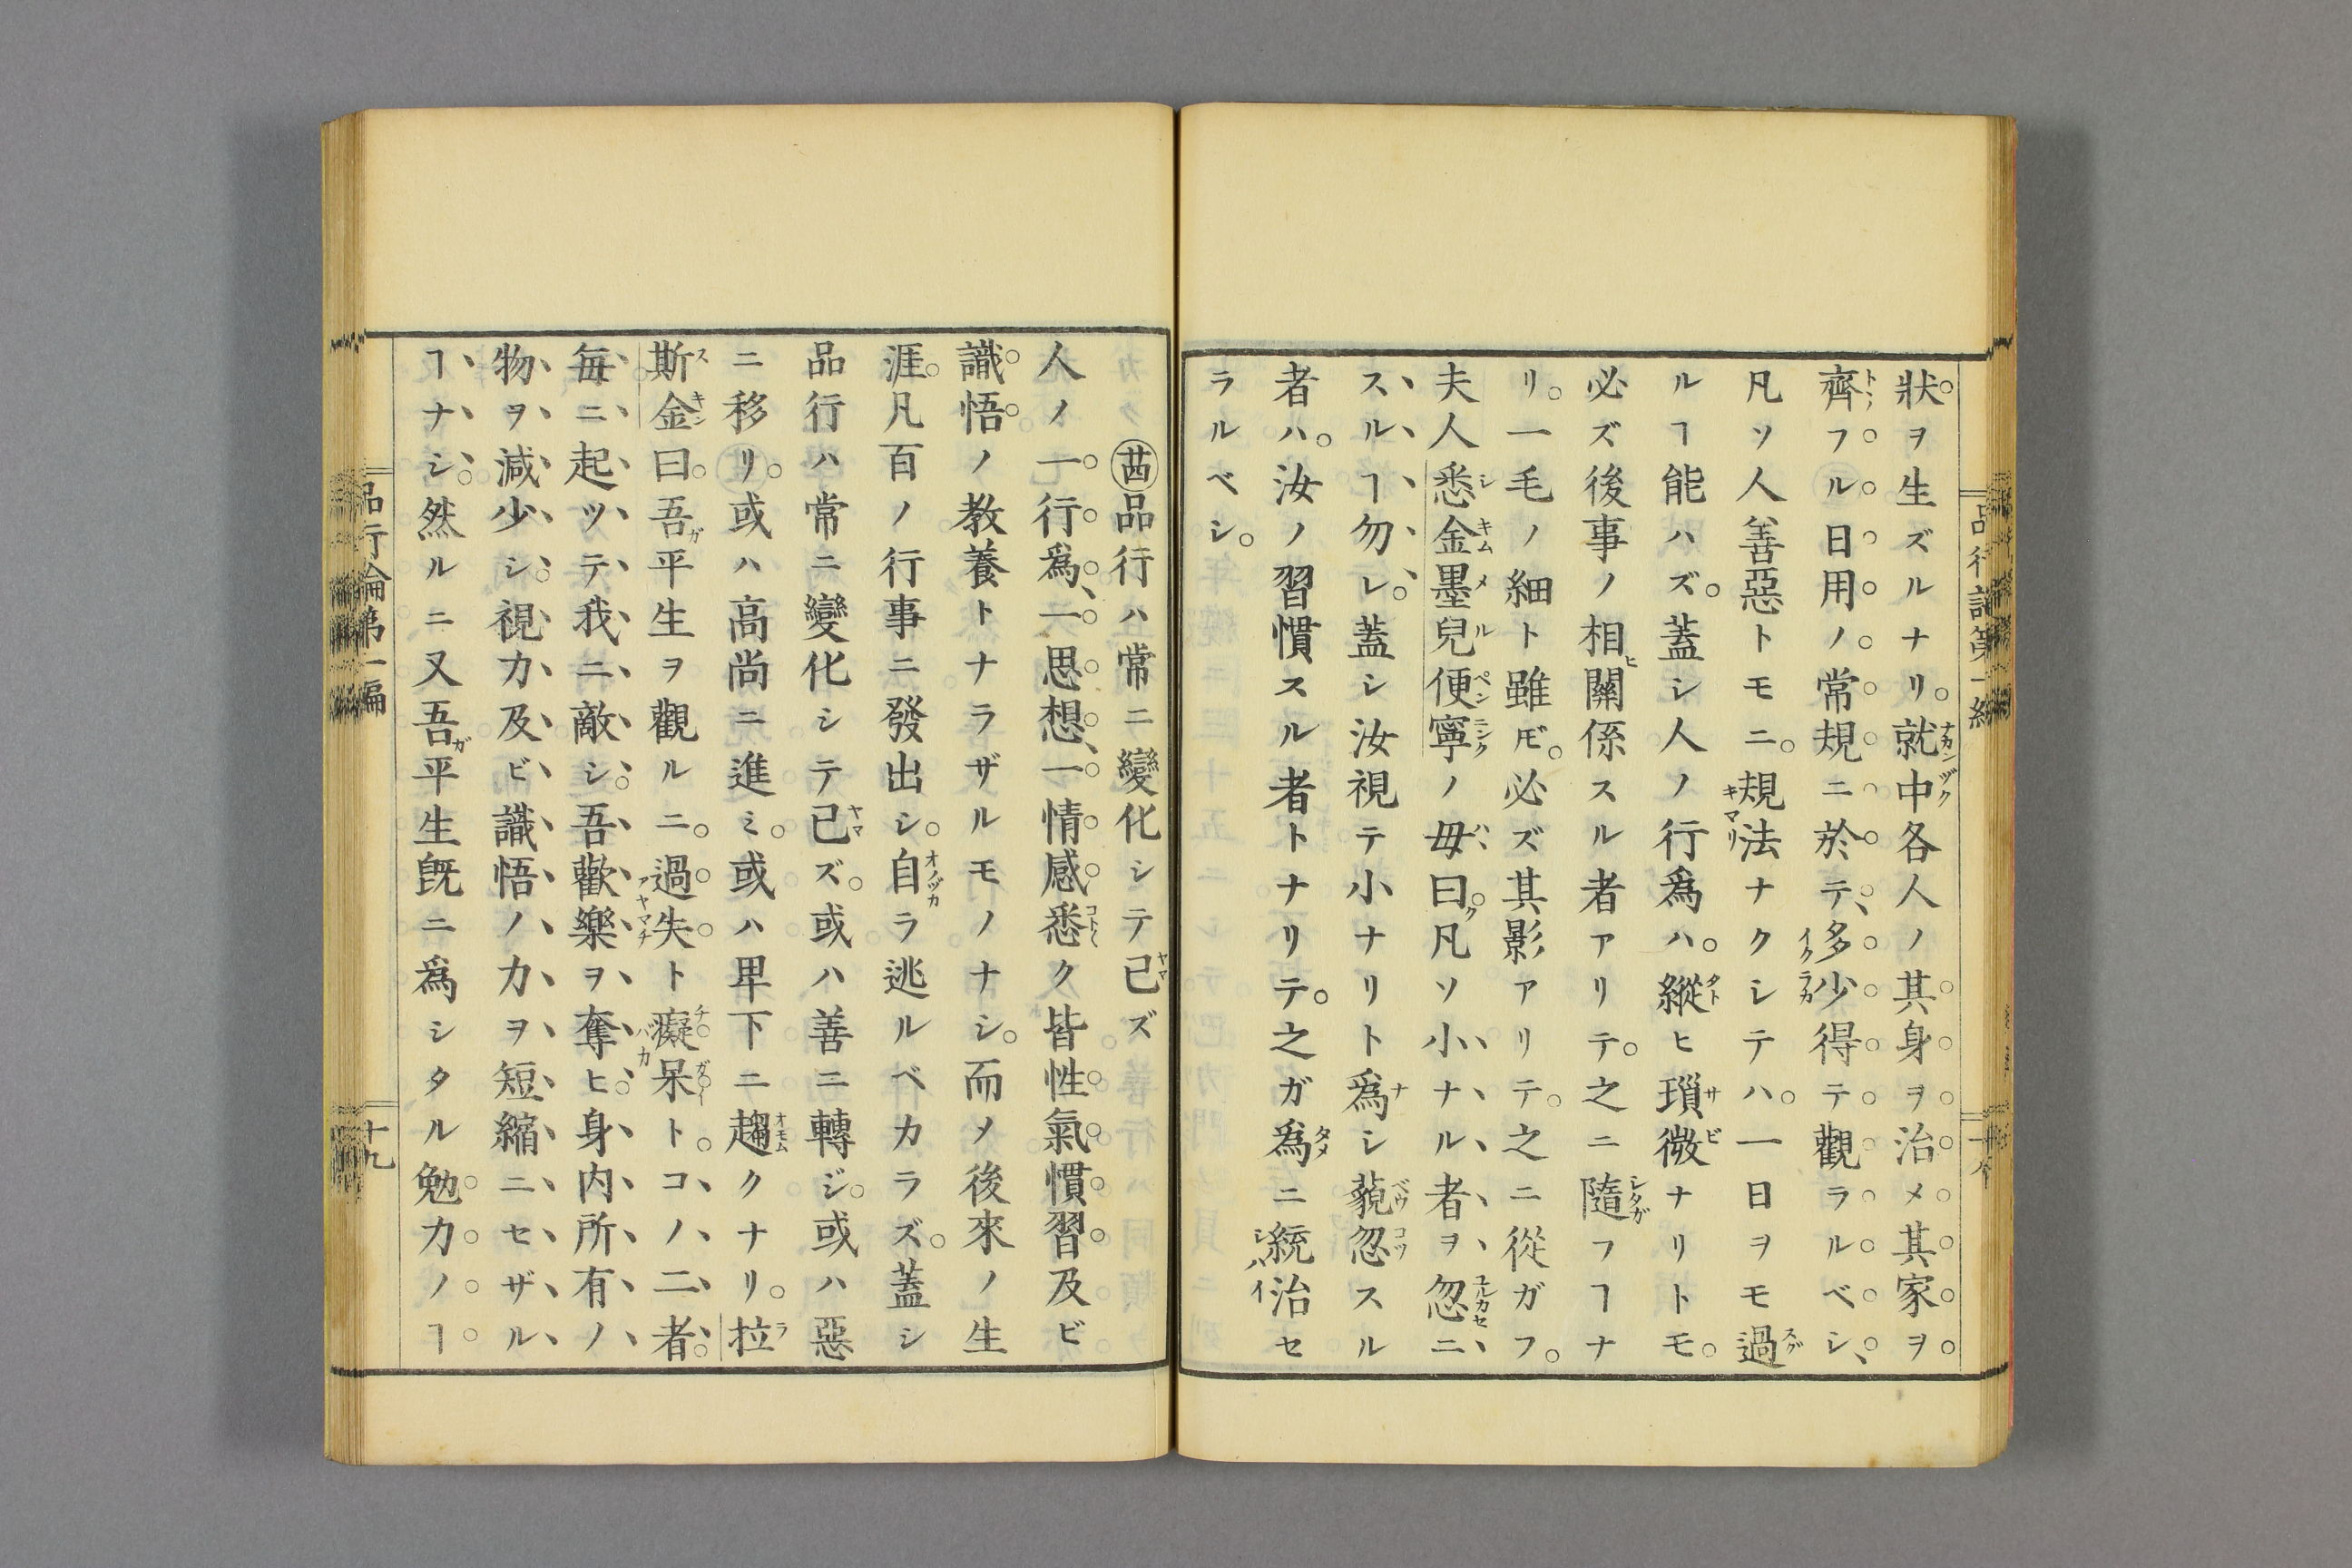 狀ヲ生ズルナリ。就中各人ノ其身ヲ治メ其家ヲ
齊フル日用ノ常規ニ於テ、多少得テ觀ラルベシ、
凡ソ人善惡トモニ。規法ナクシテハ。一日ヲモ過
ルヿ能ハズ。蓋シ人ノ行爲ハ。縱ヒ瑣微ナリトモ。
必ズ後事ノ相關係スル者アリテ。之ニ隨フヿナ
リ。一毛ノ細ト雖𪜈。必ズ其影アリテ。之ニ從ガフ。
夫人悉金墨兒便寧ノ毋曰。凡ソ小ナル者ヲ忽ニ
スルヿ勿レ。蓋シ汝視テ小ナリト爲シ藐忽スル
者ハ。汝ノ習慣スル者トナリテ。之ガ爲ニ統治セ
ラルベシ。
品行論第一編
㊄品行ハ常ニ變化シテ已ズ
人ノ一行爲、一思想、一情感悉ク皆性氣慣習及ビ
識悟ノ教養トナラザルモノナシ。而メ後來ノ生
涯。凡百ノ行事ニ發出シ。自ラ逃ルベカラズ。蓋シ
品行ハ常ニ變化シテ已ズ。或ハ善ニ轉ジ。或ハ惡
ニ移リ。或ハ高尚ニ進ミ。或ハ卑下ニ趨クナリ。拉
斯金曰。吾平生ヲ觀ルニ。過失ト癡呆ト。コノ二者。
毎ニ起ツテ我ニ敵シ。吾歡樂ヲ奪ヒ。身内所有ノ
物ヲ減少シ。視力及ビ識悟ノ力ヲ短縮ニセザル
ヿナシ。然ルニ又吾平生既ニ爲シタル勉力ノヿ
品行論第一編
十九